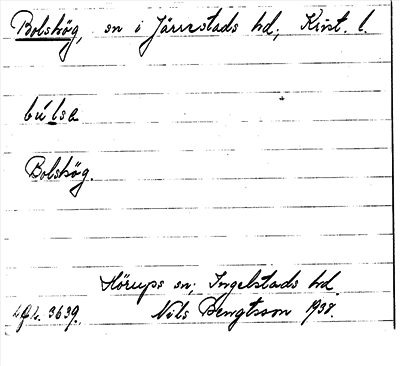 Bolshög, sn i Järrestads hd; Krist. l.
búlsa
Bolshög.
Hörups sn; Ingelstads hd
Nils Bengtsson 1938.
3639.